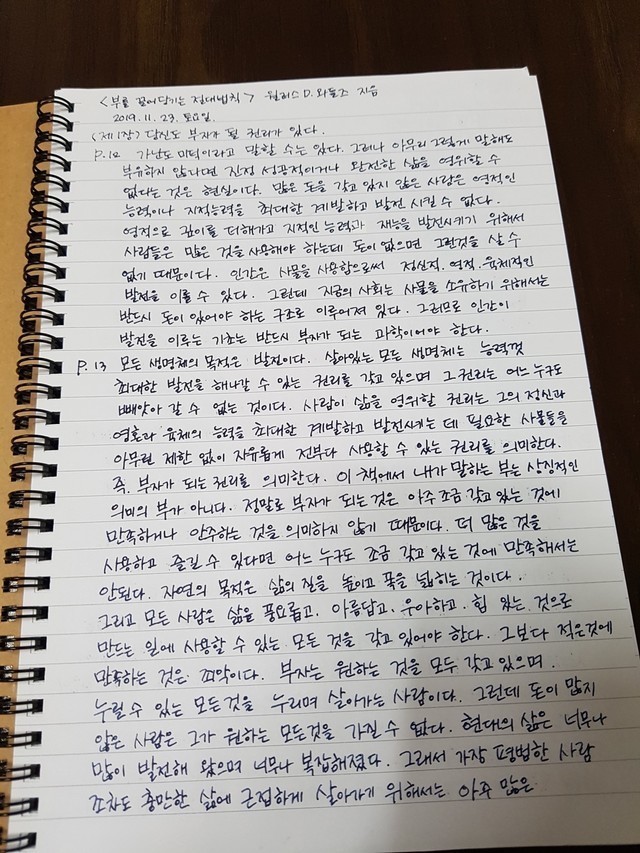 <부를 끌어당기는 절대법칙> 월러스 D. 와틀즈 지음
2019. 11. 23. 토요일.
<제1장> 당신도 부자가 될 권리가 있다.
P.12 가난도 미덕이라고 말할 수는 있다. 그러나 아무리 그렇게 말해도
부유하지 않다면 진정 성공적이거나 완전한 삶을 영위할 수
없다는 것은 현실이다. 많은 돈을 갖고 있지 않은 사람은 영적인
능력이나 지적능력을 최대한 계발하고 발전시킬 수 없다.
영적으로 깊이를 더해가고 지적인 능력과 재능을 발전시키기 위해서
사람들은 많은 것을 사용해야 하는데 돈이 없으면 그런것을 살 수
없기 때문이다. 인간은 사물을 사용함으로써 정신적. 영적. 육체적인
발전을 이룰 수 있다. 그런데 지금의 사회는 사물을 소유하기 위해서는
반드시 돈이 있어야 하는 구조로 이루어져 있다. 그러므로 인간이
발전을 이루는 기초는 반드시 부자가 되는 과학이어야 한다.
P.13 모든 생명체의 목적은 발전이다. 살아있는 모든 생명체는 능력껏
최대한 발전을 해나갈 수 있는 권리를 갖고 있으며 그 권리는 어느 누구도
빼앗아 갈 수 없는 것이다. 사람이 삶을 영위할 권리는 그의 정신과
영혼과 육체의 능력을 최대한 계발하고 발전시키는 데 필요한 사물들을
아무런 제한 없이 자유롭게 전부다 사용할 수 있는 권리를 의미한다.
즉. 부자가 되는 권리를 의미한다. 이 책에서 내가 말하는 부는 상징적인
의미의 부가 아니다. 정말로 부자가 되는 것은 아주 조금 갖고 있는 것에
만족하거나 안주하는 것을 의미하지 않기 때문이다. 더 많은 것을
사용하고 즐길 수 있다면 어느 누구도 조금 갖고 있는 것에 만족해서는
안된다. 자연의 목적은 삶의 질을 높이고 폭을 넓히는 것이다.
그리고 모든 사람은 삶을 풍요롭고. 아름답고. 우아하고. 힘 있는 것으로
만드는 일에 사용할 수 있는 모든 것을 갖고 있어야 한다. 그보다 적은것에
만족하는 것은 죄악이다. 부자는 원하는 것을 모두 갖고 있으며.
누릴 수 있는 모든것을 누리며 살아가는 사람이다. 그런데 돈이 많지
않은 사람은 그가 원하는 모든것을 가질 수 없다. 현대의 삶은 너무나
많이 발전해 왔으며 너무나 복잡해졌다. 그래서 가장 평범한 사람
조차도 충만한 삶에 근접하게 살아가기 위해서는 아주 많은